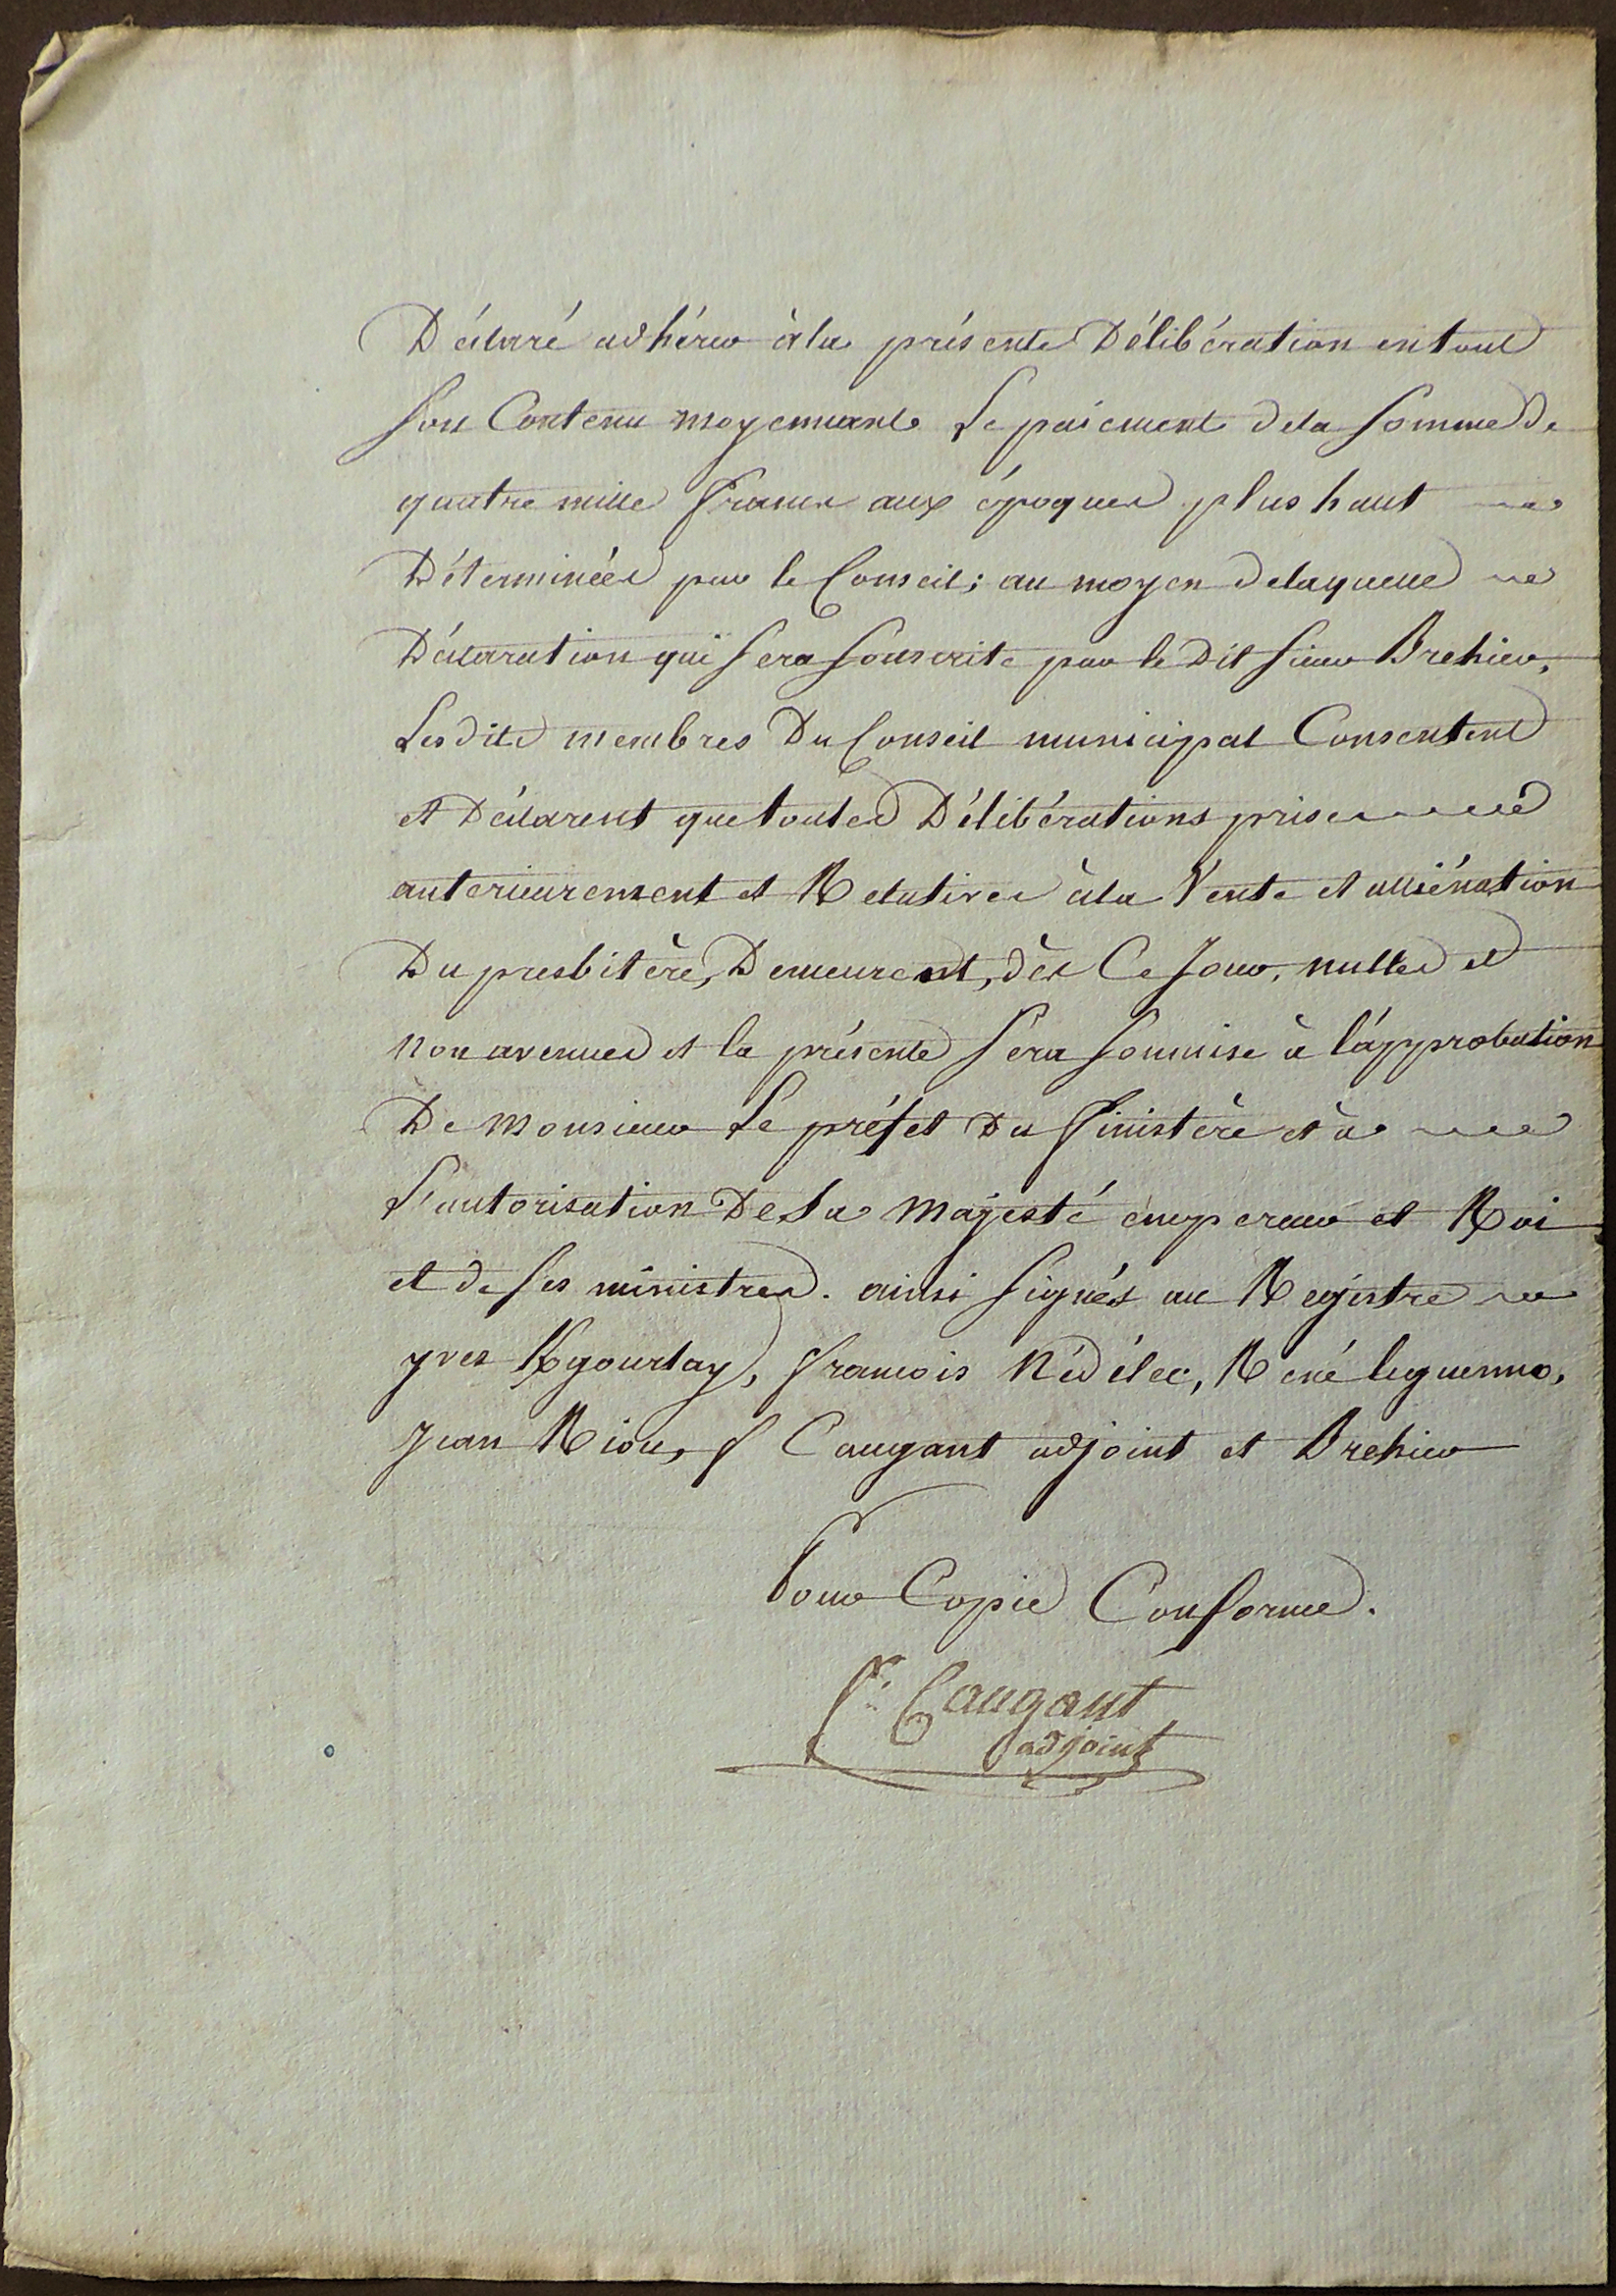 Déclaré adhérer à la présente Délibération en tout
son Contenu moyennant le paiement de la somme de
quatre mille francs aux époques plus haut
Déterminées par le Conseil; au moyen de laquelle
Déclaration qui sera souscrite par le Dit sieur Brehier,
Lesdits membres Du Conseil municipal Consentent
et Déclarent que toutes Délibérations prises
anterieurement et Relatives à la Vente et alliénation
Du presbitère, Demeurent, dès Ce Jour, nulles et
non avenues et la présente sera soumise à l'approbation
De Monsieur Le préfet Du finistère et à
L'autorisation De Sa Majesté empereur et Roi
et de ses ministres. ainsi signés au Registre
yves Kgourlay, francois Nédélec, René leguenno,
Jean Riou, f Caugant adjoint et Brehier
Pour Copie Conforme.
f. Caugant
adjoint